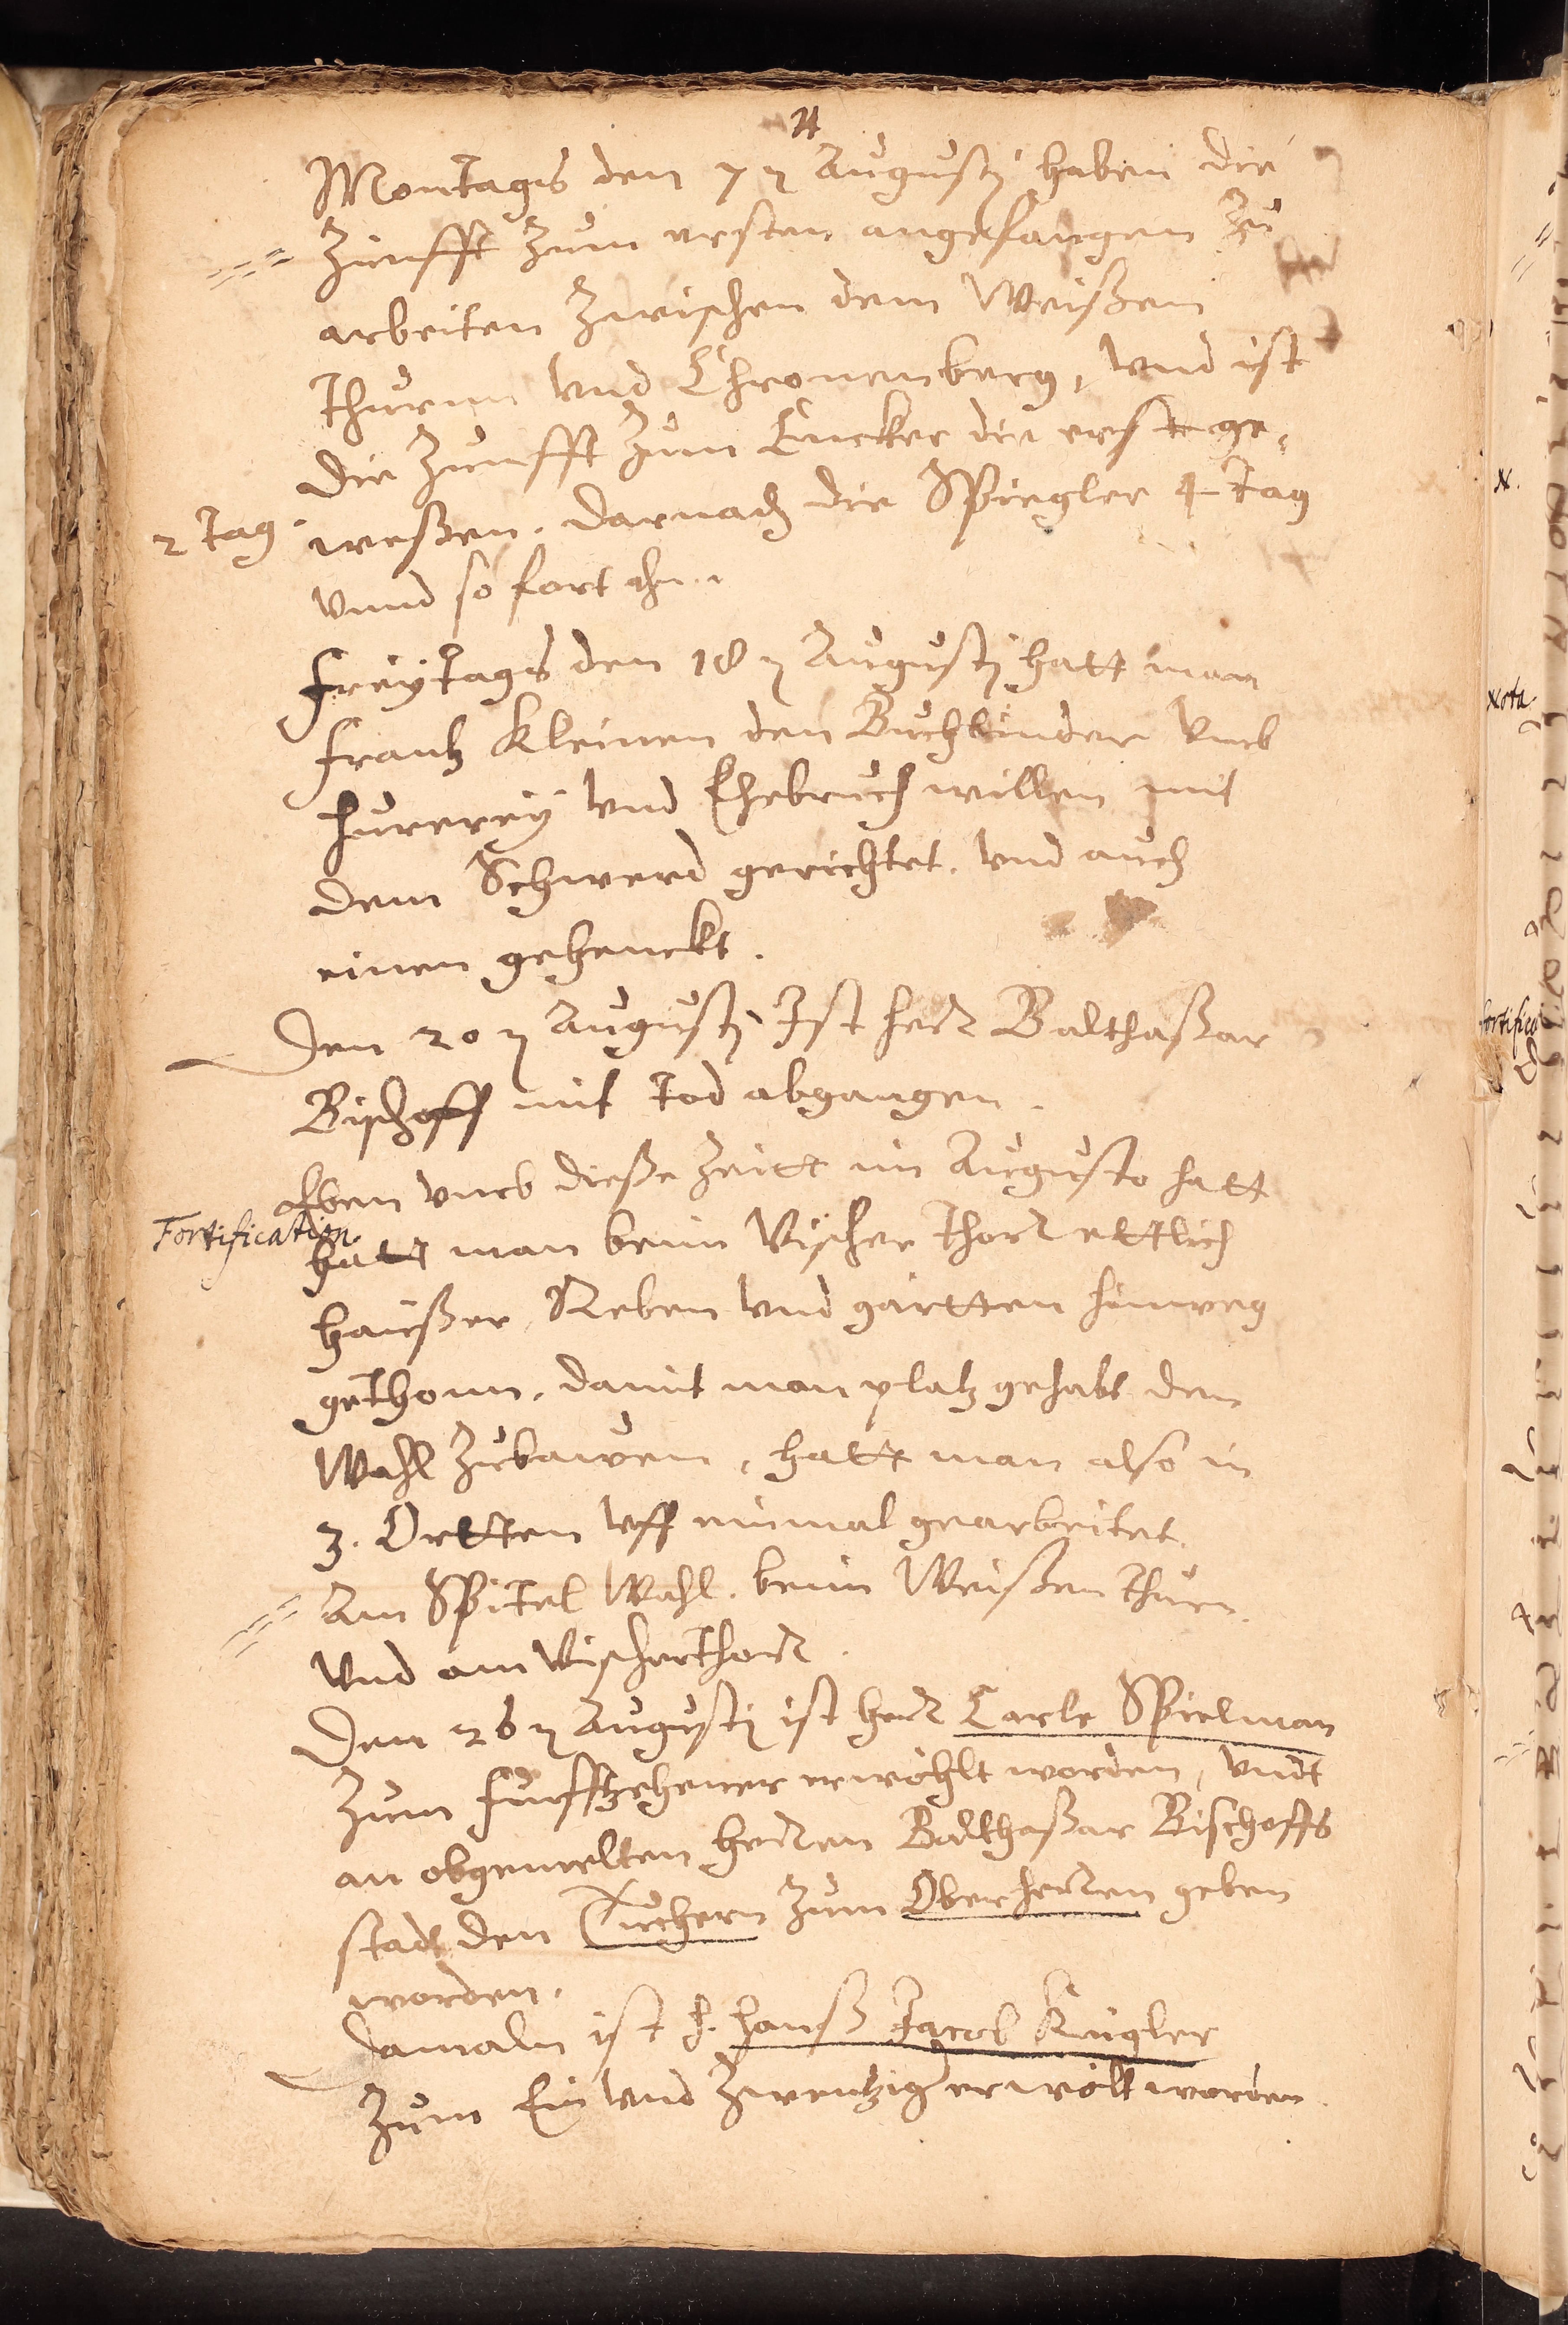 Montags den 7 ꝫ Augustj haben die
Zünfft Zum ersten angefangen Zu
arbeiten Zwischen dem Weißen
Thurnn vnd Chronenberg, vnd ist
die Zunfft Zum Encker die erste ge,
2 Tag
weßen. darnach die Spiegler 4 Tag
vnnd so fort ahn.
freÿtags den 18 ꝫ Augustj hatt man
frantz Kleinen den Buchbinder vmb
hurereÿ vnd Ehebruch willen mit
dem Schwerd gerichtet. vnd auch
einen gehenckt.
Den 20 ꝫ Augustj Ist herr Balthaßar
Bischoff mit Tod abgangen.
Eben vmb dieße Zeitt im Augusto hatt
Fortification.
hatt man beim Vischer Thorr ettlich
haüßer, Reben vnd gärtten hinweg
gethonn. damit man platz gehabt den
Wahl Zubawen, hatt man also in
3. Ortten vff einmal gearbeitet.
Am Spitel Wahl. beim Weißen Thurn.
Vnd am Vischerthorr.
Den 26 ꝫ Augustj ist herr Carle Spielman
Zum fünffzehener erwöhlt worden, vndt
an obgemelten herren Balthaßar Bischoffs
stadt den Tuchern Zum Oberherren geben
worden.
Damaln ist h. Hanß Jacob Kügler
Zum Ein vnd Zwentzig erwölt worden.
Nota.